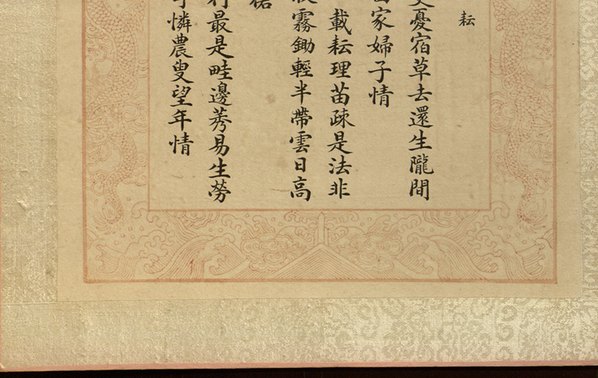 耘
憂宿草去還生隴間
家婦子情
載耘理苗疎是法非
霧鋤輕半帶雲日高
最是畦邊莠易生勞
憐農叟望年情